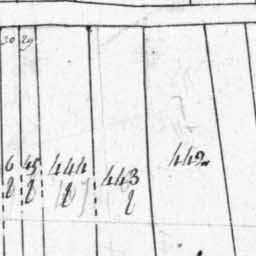 30 29
6 45 444 443 442
l l l l